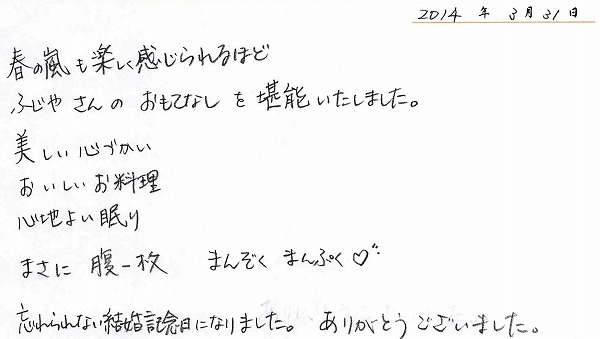 2014年 3月31日
春の嵐も楽しく感じられるほど
ふじやさんの おもてなしを堪能いたしました。
美しい心づかい
おいしいお料理
心地よい眠り
まさに 腹一枚 まんぞく まんぷく♡
忘れられない結婚記念日になりました。 ありがとうございました。